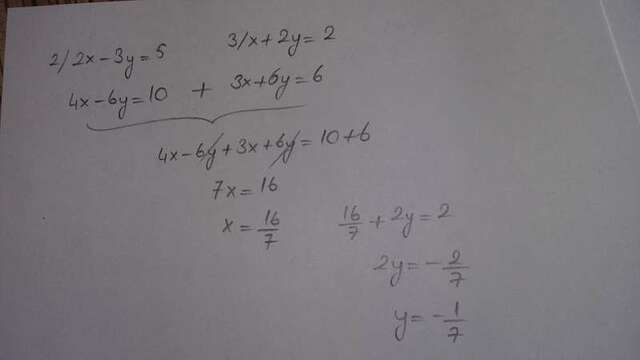 2/2x-3y=5 3/x+2y=2
4x-6y=10 + 3x+6y=6
4x-6y+3x+6y=10+6
7x=16
x=16/7 16/7+2y=2
2y=-2/7
y=-1/7